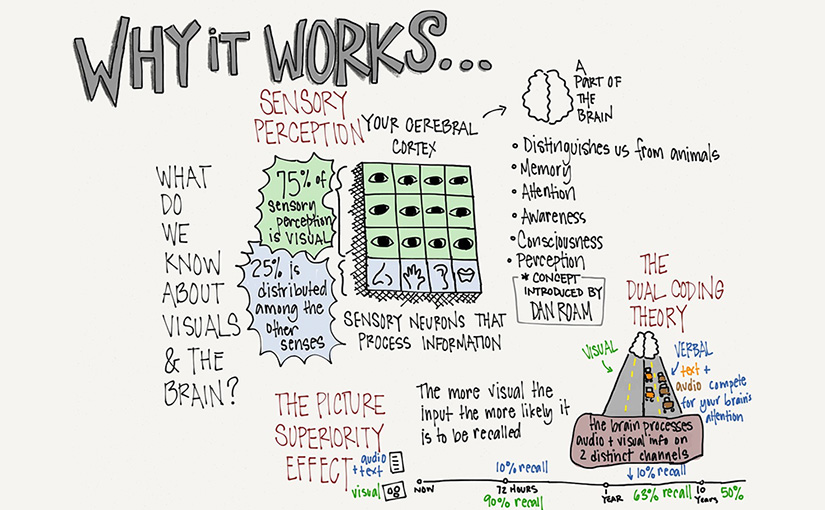 WHY iT WORKS...
WHAT
DO
WE
KNOW
ABOUT
VISUALS
& THE
BRAIN?
SENSORY
PERCEPTION
75% of
sensory
perception
is VISUAL
25% is
distributed
among the
other
senses
YOUR CEREBRAL
CORTEX
SENSORY NEURONS THAT
PROCESS INFORMATION
A
PART OF
THE
BRAIN
• Distinguishes us from animals
• Memory
• Attention
• Awareness
• Consciousness
• Perception
* CONCEPT
INTRODUCED BY
DAN ROAM
THE
DUAL CODING
THEORY
VISUAL
VERBAL
text +
audio compete
for your brain's
attention
the brain processes
audio + visual info on
2 distinct channels
THE PICTURE
SUPERIORITY
EFFECT
The more visual the
input the more likely it
is to be recalled
audio
+ text
visual
10% recall
↓ 10% recall
NOW
72 HOURS
1 YEAR
10 Years
90% recall
63% recall
50%